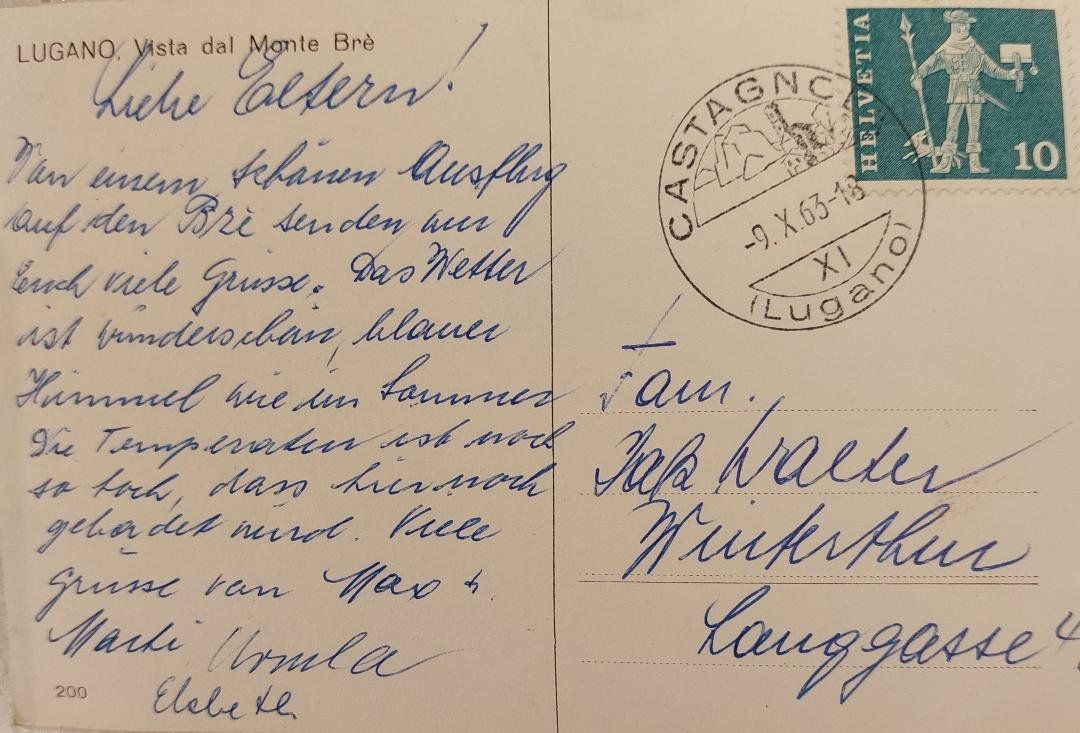 LUGANO, Vista dal Monte Brè
Liebe Eltern!
Von einem schönen Ausflug
auf den Brè senden wir
Euch viele Grüsse. Das Wetter
ist wunderschön, blauer
Himmel wie im Sommer
Die Temperatur ist noch
so hoch, dass hier noch
gebadet wird. Viele
Grüsse von Max +
Marti Ursula
Elsbeth.
200
HELVETIA
10
CASTAGNOLA
-9.X.63-18
XI
(Lugano)
Fam.
Walter
Winterthur
Langgasse 4